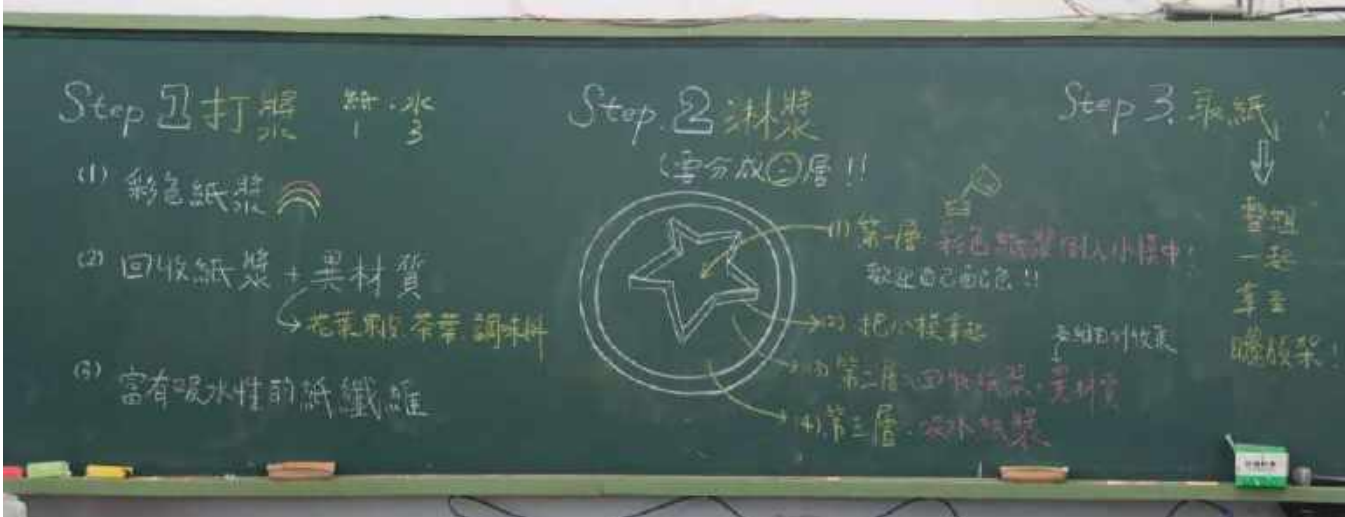 Step 1 打漿 紙·水
1 3
(1) 彩色紙漿
(2) 回收紙漿 + 異材質
花葉果皮 茶葉 調味料
(3) 富有吸水性的紙纖維
Step 2 淋漿
(要分成三層!!
(1) 第一層 彩色紙漿倒入小模中!
歡迎自己配色!!
(2) 把小模拿起
(3) 第二層:回收紙漿·異材質
(4) 第三層·吸水紙漿
Step 3. 取紙
整組
一起
拿至
曬紙架!